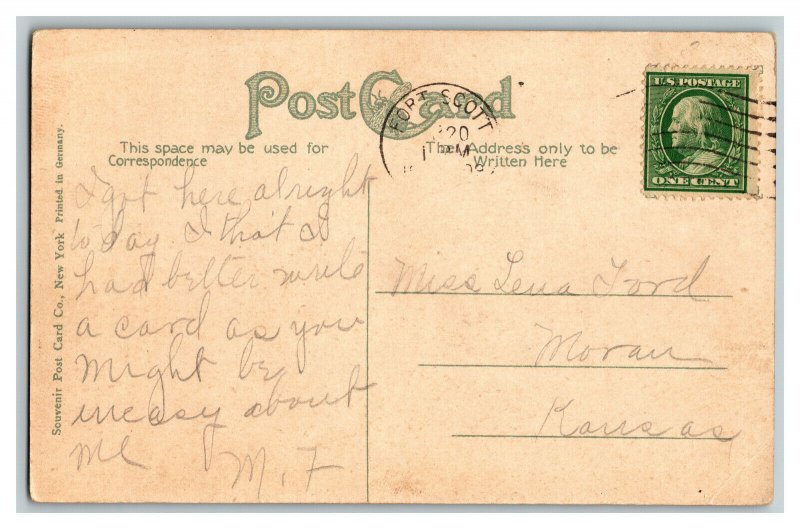 Post Card
This space may be used for
Correspondence
The Address only to be
Written Here
Souvenir Post Card Co., New York Printed in Germany.
FORT SCOTT
20
M
U.S. POSTAGE
ONE CENT
I got here alright
to day I that I
had better write
a card as you
might be
uneasy about
me
M. F
Miss Lena Ford
Moran
Kansas